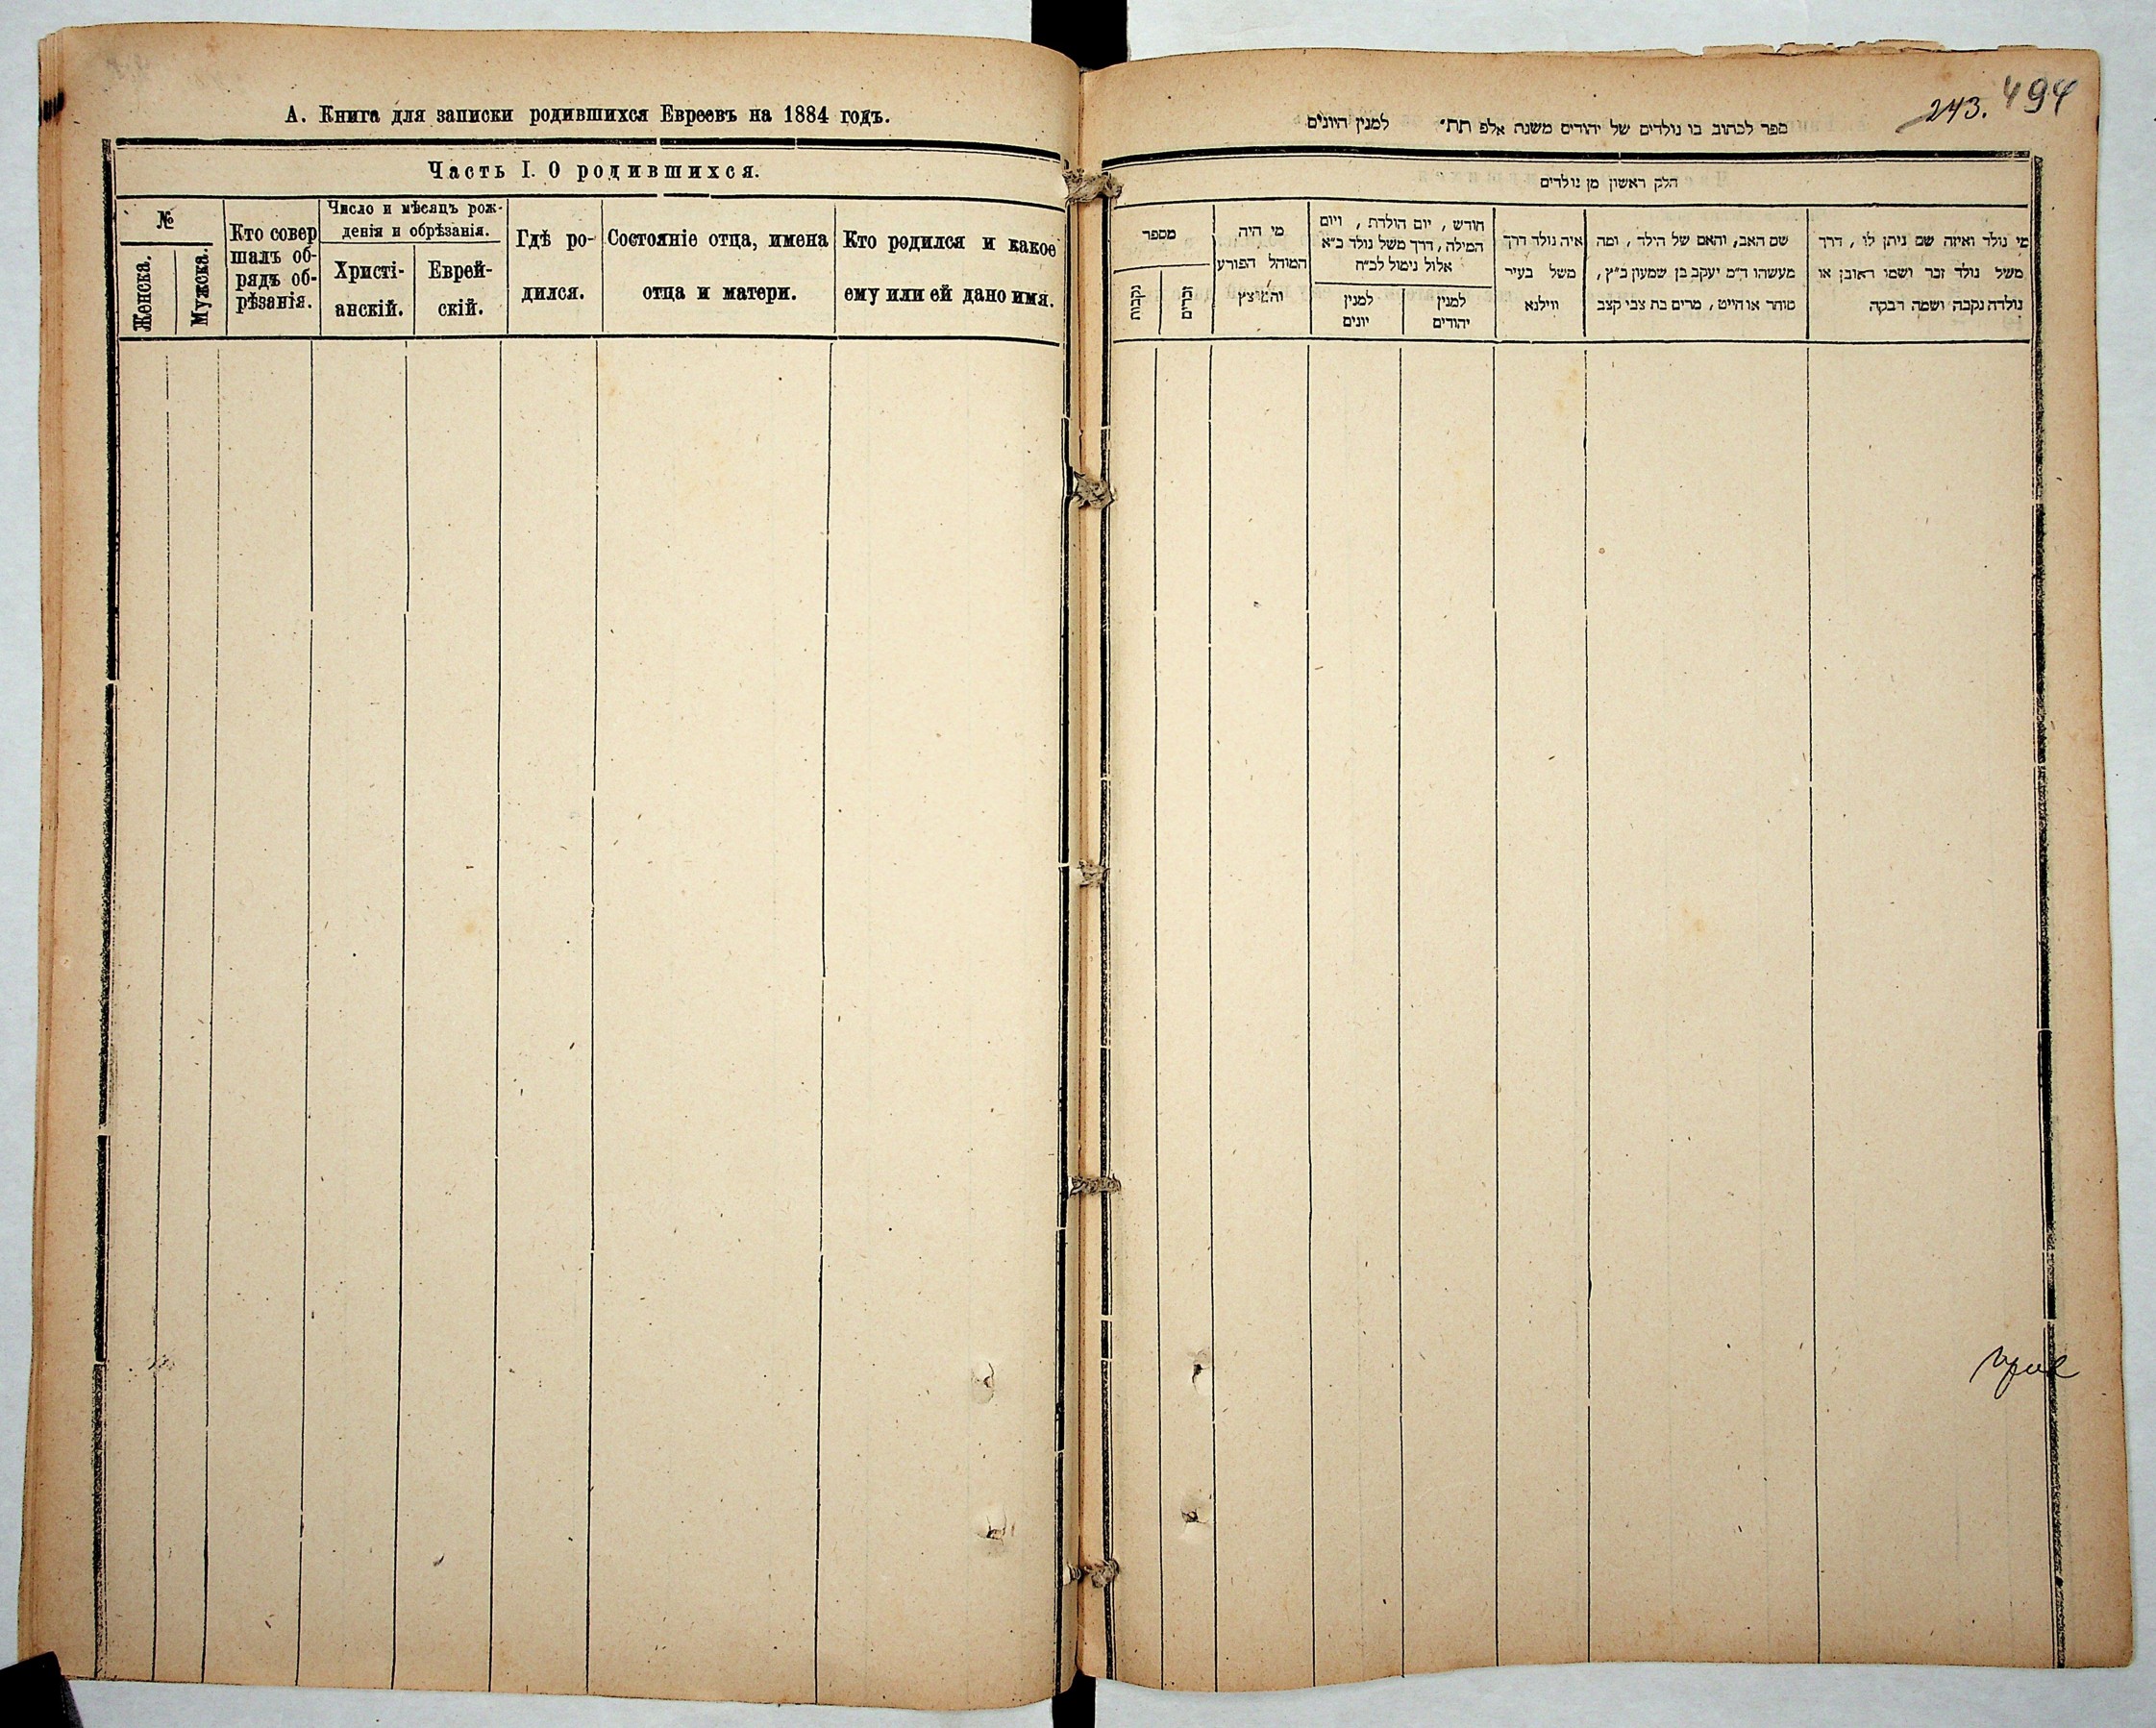 А. Книга для записки родившихся Евреевъ на 1884 годъ.
Часть I. О родившихся.
№
Женска.
Мужска.
Кто совер
шалъ об-
рядъ об-
рѣзанія.
Число и мѣсяцъ рож-
денія и обрѣзанія.
Христі-
анскій.
Еврей-
скій.
Гдѣ ро-
дился.
Состояніе отца, имена
отца и матери.
Кто родился и какое
ему или ей дано имя.
494
243.
ספר לכתוב בו נולדים של יהודים משנת אלפ תת״ למנין היונים
חלק ראשון מן נולדים
מי נולד ואיזה שם ניתן לו , דרך
משל נולד זכר ושמו ראובן או
נולדה נקבה ושמה רבקה
שם האב, והאם של הילד , ומה
מעשהו ד״מ יעקב בן שמעון כ״ץ,
סוחר או חייט , מרים בת צבי קצב
איה נולד דרך
משל בעיר
ווילנא
חודש , יום הולדת , ויום
המילה, דרך משל נולד כ״א
אלול נימול לכ״ח
למנין
יהודים
למנין
יונים
מי היה
המוהל הפורע
והמוצץ
מספר
זכרים
נקבות